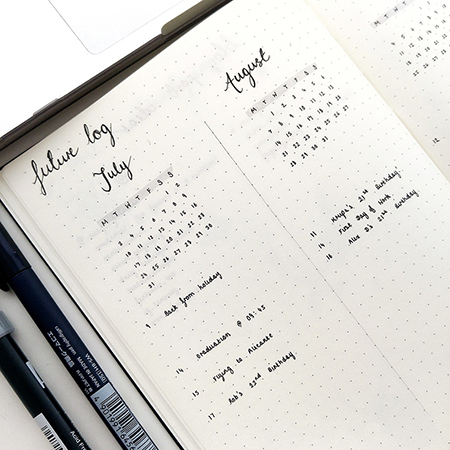 future log
July
M T W T F S S
1 2
3 4 5 6 7 8 9
10 11 12 13 14 15 16
17 18 19 20 21 22 23
24 25 26 27 28 29 30
31
9 Back from holiday
14 Graduation @ 09:45
15 Flying to Alicante
17 Rob's 22nd Birthday.
August
M T W T F S S
1 2 3 4 5 6
7 8 9 10 11 12 13
14 15 16 17 18 19 20
21 22 23 24 25 26 27
28 29 30 31
11 21st Birthday!
14 First Day of Work
16 Alice B's 21st Birthday.
12
calligraphy pen
WS-BH(150)
MADE IN JAPAN
Acid